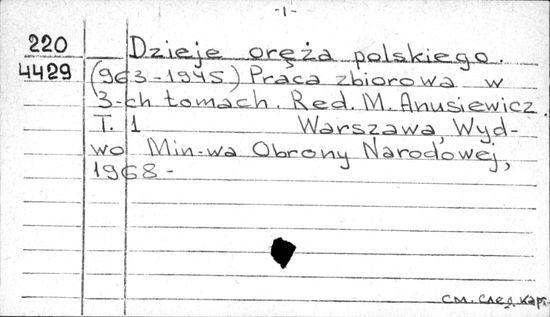 -1-
220 Dzieje oręża polskiego.
4429 (963-1945) Praca zbiorowa w
3-ch tomach. Red. M. Anusiewicz.
T. 1 Warszawa, Wyd-
wo Min-wa Obrony Narodowej,
1968-
см. след. карт.